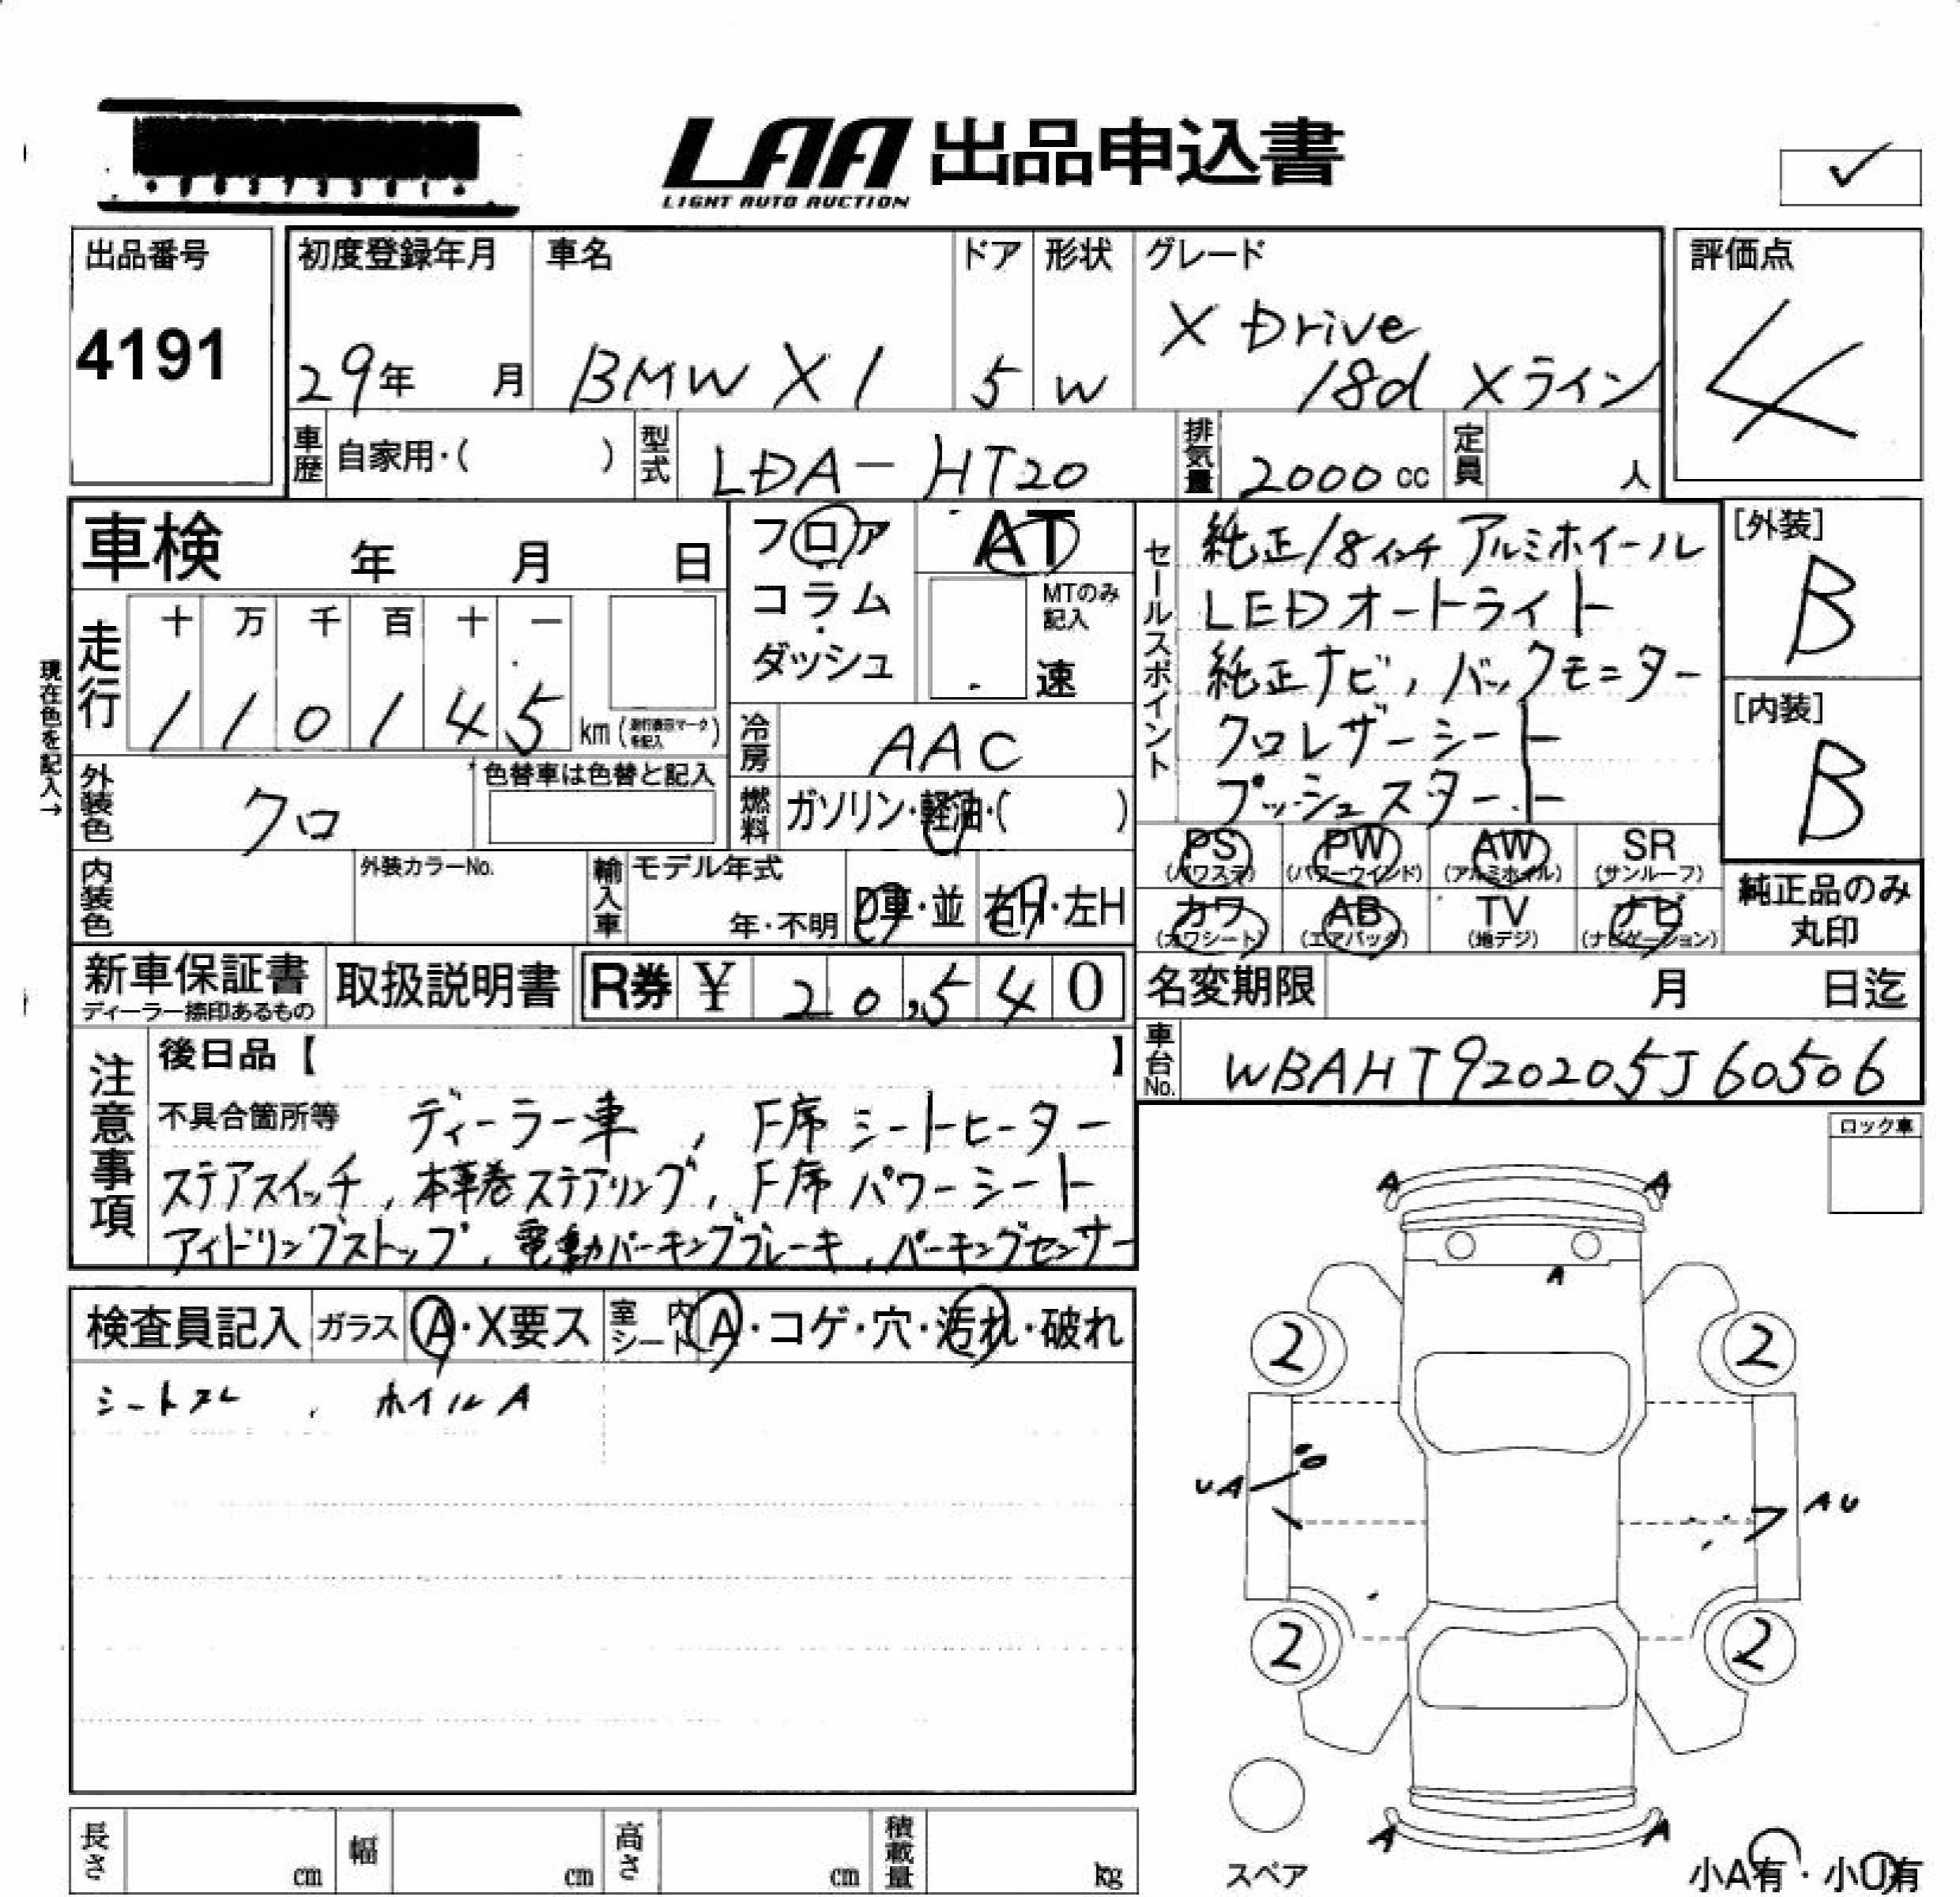 LAA 出品申込書
LIGHT AUTO AUCTION
出品番号
4191
初度登録年月
29年 月
車名
BMW X1
ドア
5
形状
W
グレード
X Drive
18d Xライン
評価点
4
車歴 自家用・( )
型式 LDA-HT20
排気量 2000 cc
定員 人
車検 年 月 日
フロア
コラム
・
ダッシュ
AT
MTのみ
記入
速
現在色を記入→
走行
十 万 千 百 十 一
1 1 0 1 4 5 km
冷房 AAC
外装色 クロ
色替車は色替と記入
燃料 ガソリン・軽油・( )
内装色
外装カラーNo.
輸入車
モデル年式
年・不明
D車・並
右H・左H
セールスポイント
純正18インチアルミホイール
LEDオートライト
純正ナビ, バックモニター
クロレザーシート
プッシュスタート
[外装]
B
[内装]
B
PS PW AW SR
(パワステ) (パワーウインド) (アルミホイル) (サンルーフ)
カワ AB TV ナビ
(カワシート) (エアバック) (地デジ) (ナビゲーション)
純正品のみ
丸印
新車保証書
ディーラー捺印あるもの
取扱説明書
R券 ¥ 20,540
名変期限 月 日迄
車台No. WBAHT920205J60506
注意事項
後日品【 】
不具合箇所等 ディーラー車 , F席シートヒーター
ステアスイッチ, 本革巻ステアリング, F席パワーシート
アイドリングストップ, 電動パーキングブレーキ, パーキングセンサー
ロック車
検査員記入 ガラス A・X要ス 室内シート A・コゲ・穴・汚れ・破れ
シートスレ , ホイルA
A A
A
2 2
UA
AU
2 2
A A
スペア
小A有・小U有
長さ cm 幅 cm 高さ cm 積載量 kg